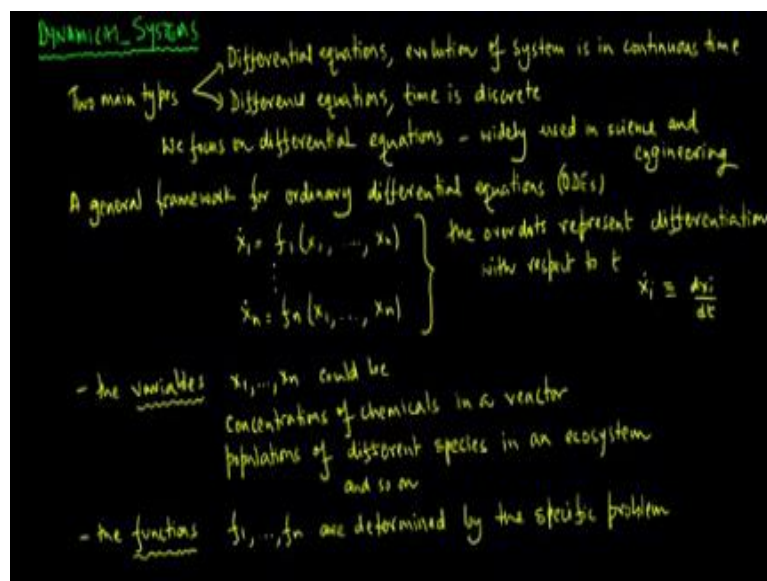 DYNAMICAL_SYSTEMS
Differential equations, evolution of system is in continuous time
Two main types
Difference equations, time is discrete
We focus on differential equations - widely used in science and
engineering
A general framework for ordinary differential equations (ODEs)
ẋ₁ = f₁(x₁, ..., xₙ)
the overdots represent differentiation
with respect to t
⋮
ẋᵢ ≡ dxᵢ/dt
ẋₙ = fₙ(x₁, ..., xₙ)
- the variables x₁,...,xₙ could be
concentrations of chemicals in a reactor
populations of different species in an ecosystem
and so on
- the functions f₁,...,fₙ are determined by the specific problem